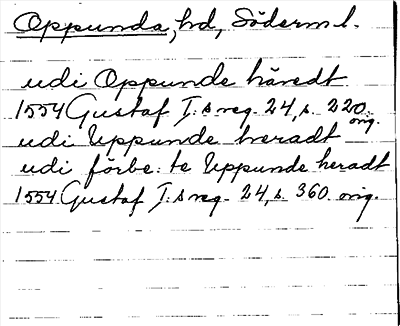 Oppunda, hd, Söderm l.
udi Oppunde häredt
1554 Gustaf I:s reg. 24, s. 220. orig.
udi Uppunde heradt
udi förbe:te Uppunde heradt
1554 Gustaf I:s reg. 24, s. 360. orig.